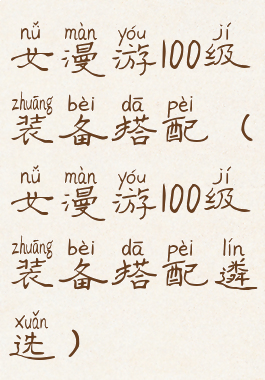 nǚ màn yóu jí
女漫游100级
zhuāng bèi dā pèi
装备搭配(
nǚ màn yóu jí
女漫游100级
zhuāng bèi dā pèi lín
装备搭配遴
xuǎn
选)